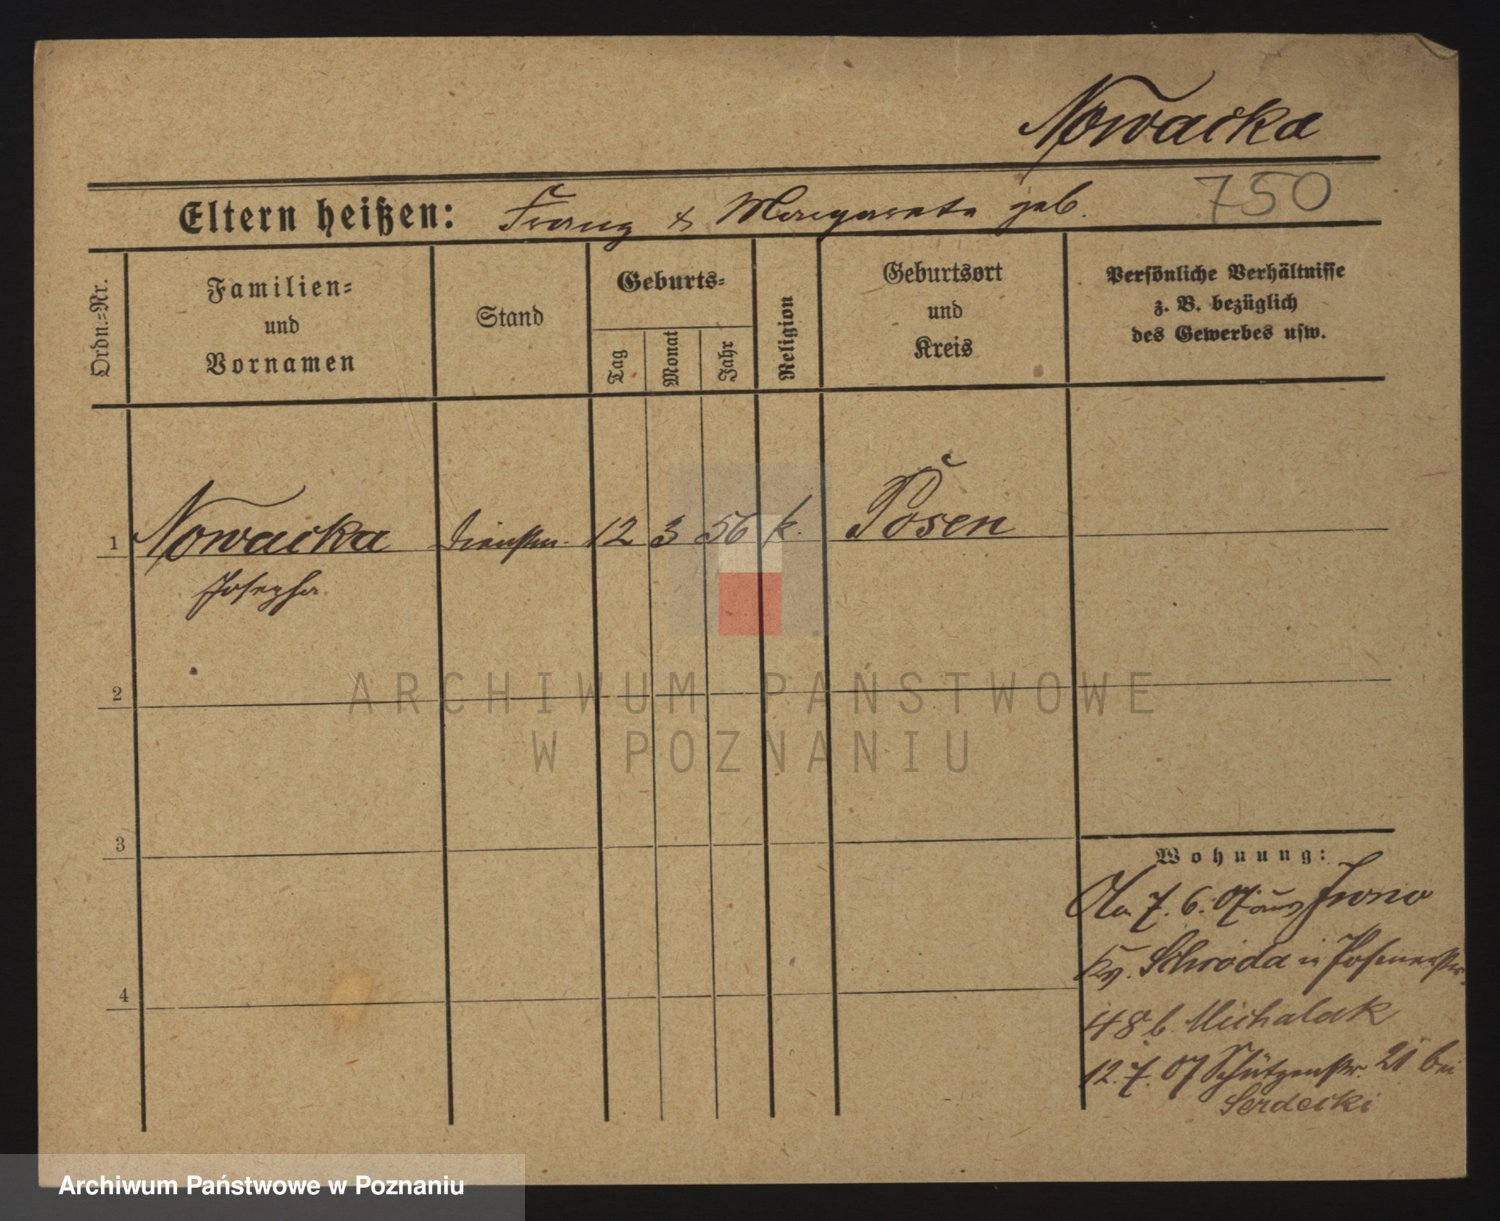 Nowacka
750
Eltern heißen: Franz & Margareta geb.
Ordn.-Nr.
Familien-
und
Vornamen
Stand
Geburts-
Tag
Monat
Jahr
Religion
Geburtsort
und
Kreis
Persönliche Verhältnisse
z. B. bezüglich
des Gewerbes usw.
1 Nowacka Dienstm. 12 3 56 k. Posen
Josepha
2
3
4
Wohnung:
7. 6. 07 aus
Schroda
48 b. Michalak
12. 7. 07 Schützenstr. 21 bei
Serdecki
ARCHIWUM PAŃSTWOWE
W POZNANIU
Archiwum Państwowe w Poznaniu